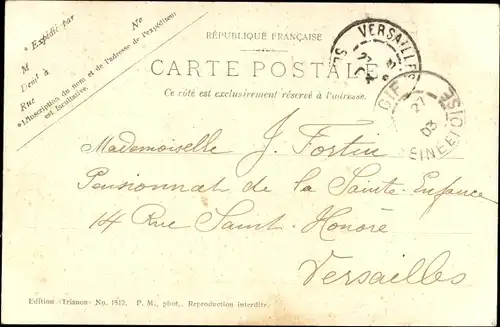 * Expédié par
M
No
Demt à
Rue
*L'inscription du nom et de l'adresse de l'expéditeur
est facultative.
RÉPUBLIQUE FRANÇAISE
CARTE POSTAL
Ce côté est exclusivement réservé à l'adresse.
VERSAILLES
GIF
27
03
SEINE ET OISE
Mademoiselle J. Fortin
Pensionnat de la Sainte Enfance
14 Rue Saint-Honoré
Versailles
Edition «Trianon» No. 1512. P. M., phot., Reproduction interdite.